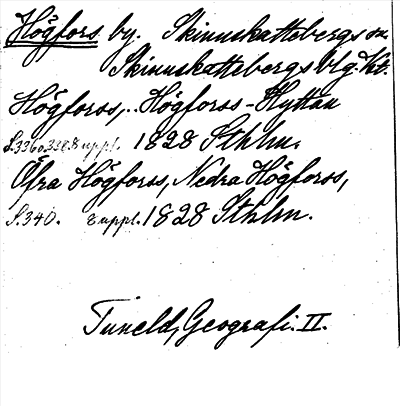 Högfors by. Skinnskattebergs sn.
Skinnskattebergs blg. Vt.
Högforss,.. Högforss-Hyttan
S.336o.338.8 uppl. 1828 Sthlm.
Öfra Högforss, Nedra Högforss,
S.340. 8 uppl. 1828 Sthlm.
Tuneld, Geografi. II.